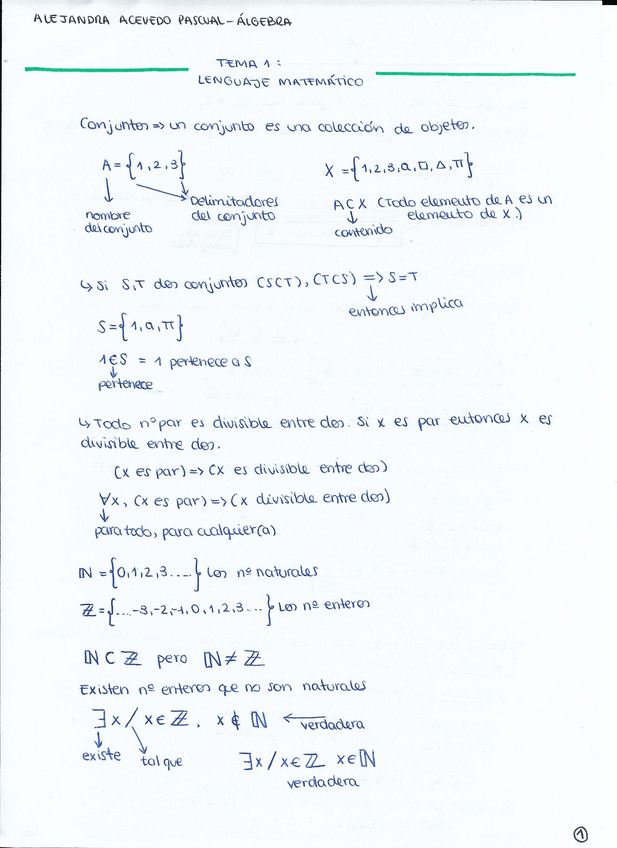 ALEJANDRA ACEVEDO PASCUAL - ÁLGEBRA
TEMA 1:
LENGUAJE MATEMÁTICO
Conjuntos => un conjunto es una colección de objetos.
A = {1, 2, 3}
X = {1, 2, 3, a, □, Δ, π}
nombre del conjunto
Delimitadores del conjunto
A ⊂ X (Todo elemento de A es un elemento de X.)
contenido
↳ Si S, T dos conjuntos (S⊂T), (T⊂S) => S=T
entonces implica
S = {1, a, π}
1∈S = 1 pertenece a S
pertenece
↳ Todo nº par es divisible entre dos. Si x es par entonces x es
divisible entre dos.
(x es par) => (x es divisible entre dos)
∀x, (x es par) => (x divisible entre dos)
para todo, para cualquier(a)
ℕ = {0, 1, 2, 3 ....} Los nº naturales
ℤ = {... -3, -2, -1, 0, 1, 2, 3 ...} Los nº enteros
ℕ ⊂ ℤ pero ℕ ≠ ℤ
Existen nº enteros que no son naturales
∃x / x∈ℤ, x ∉ ℕ ← verdadera
existe
tal que
∃x / x∈ℤ x∈ℕ
verdadera
1